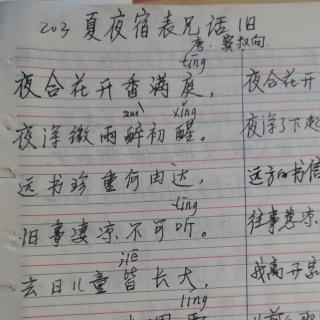 203 夏夜宿表兄话旧
唐·窦叔向
tíng
夜合花开香满庭, 夜合花开
zuì xǐng
夜深微雨醉初醒。 夜深了下起
远书珍重何由达, 远方的书信
tīng
旧事凄凉不可听。 往事悲凉
jiē
去日儿童皆长大, 我离开家
líng